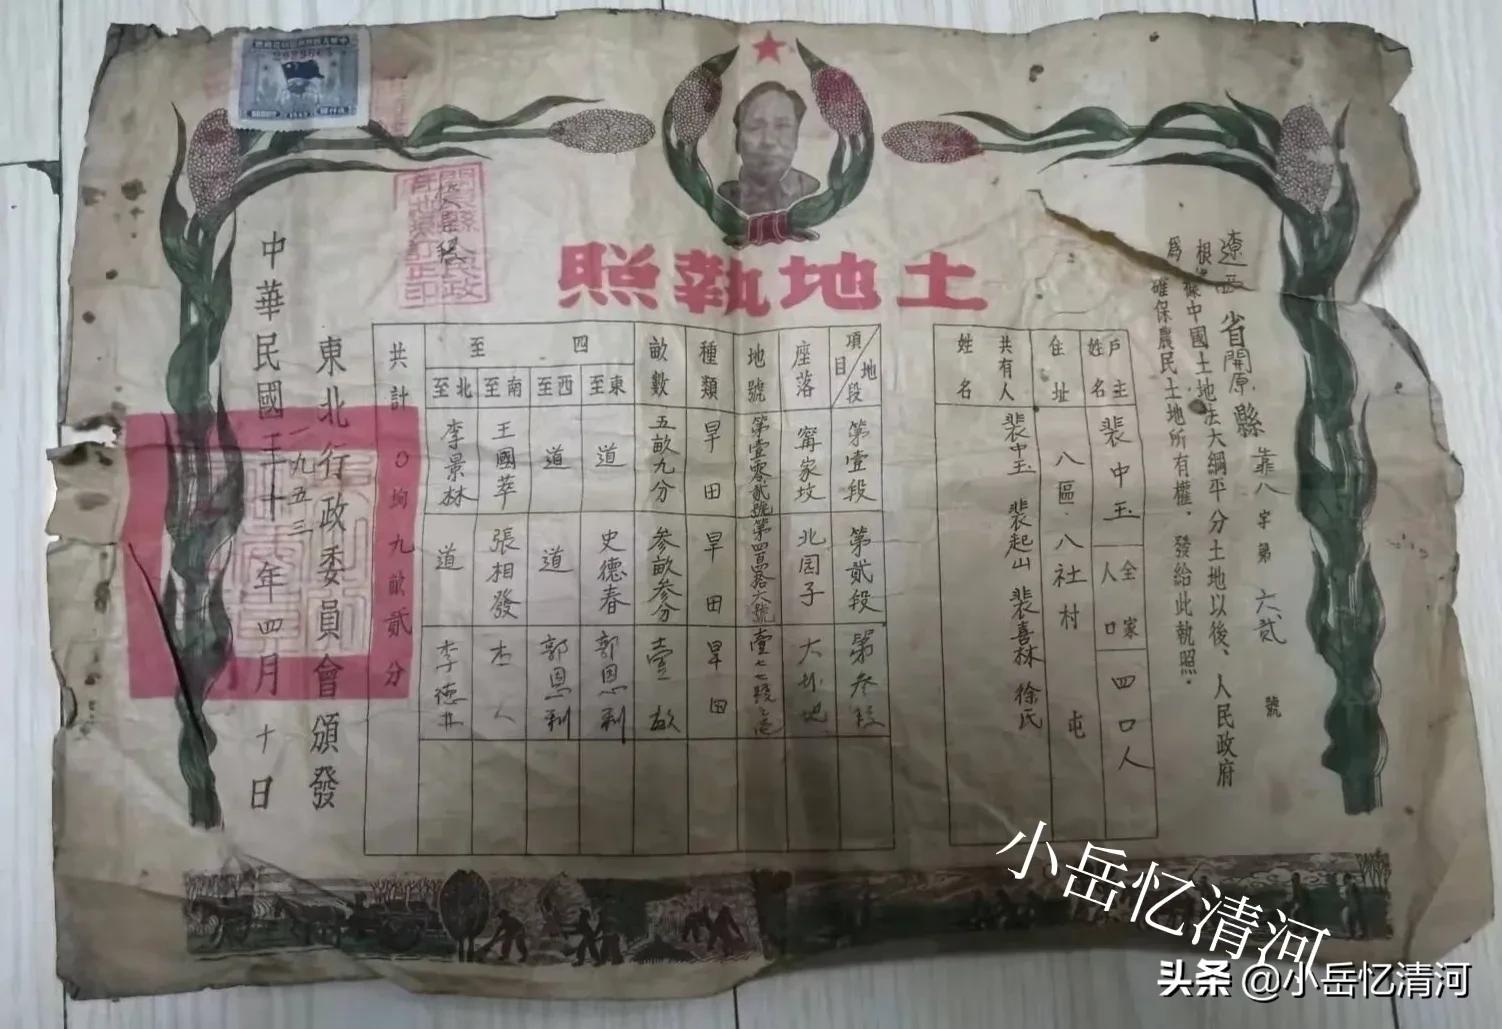 土地執照
省開原縣靠八字第六貳號
根據中國土地法大綱平分土地以後、人民政府
爲確保農民土地所有權、發給此執照.
戶主姓名 裴中玉 全家人口 四口人
住址 八區八社村 屯
共有人姓名 裴中玉 裴起山 裴喜林 徐氏
項目 地段 第壹段 第貳段 第叁段
座落 甯家坟 北园子
地號 第壹零貳號
種類 旱田 旱田 旱田
畝數 五畝九分 参畝参分 壹畝
四至
東至 道 史德春 郭恩利
西至 道 道 郭恩利
南至 王國萃 張相發
北至 李景林 道
共計 〇垧九畝貳分
東北行政委員會頒發
中華民國三十 年四月十日
一九五三
小岳忆清河
头条 @小岳忆清河